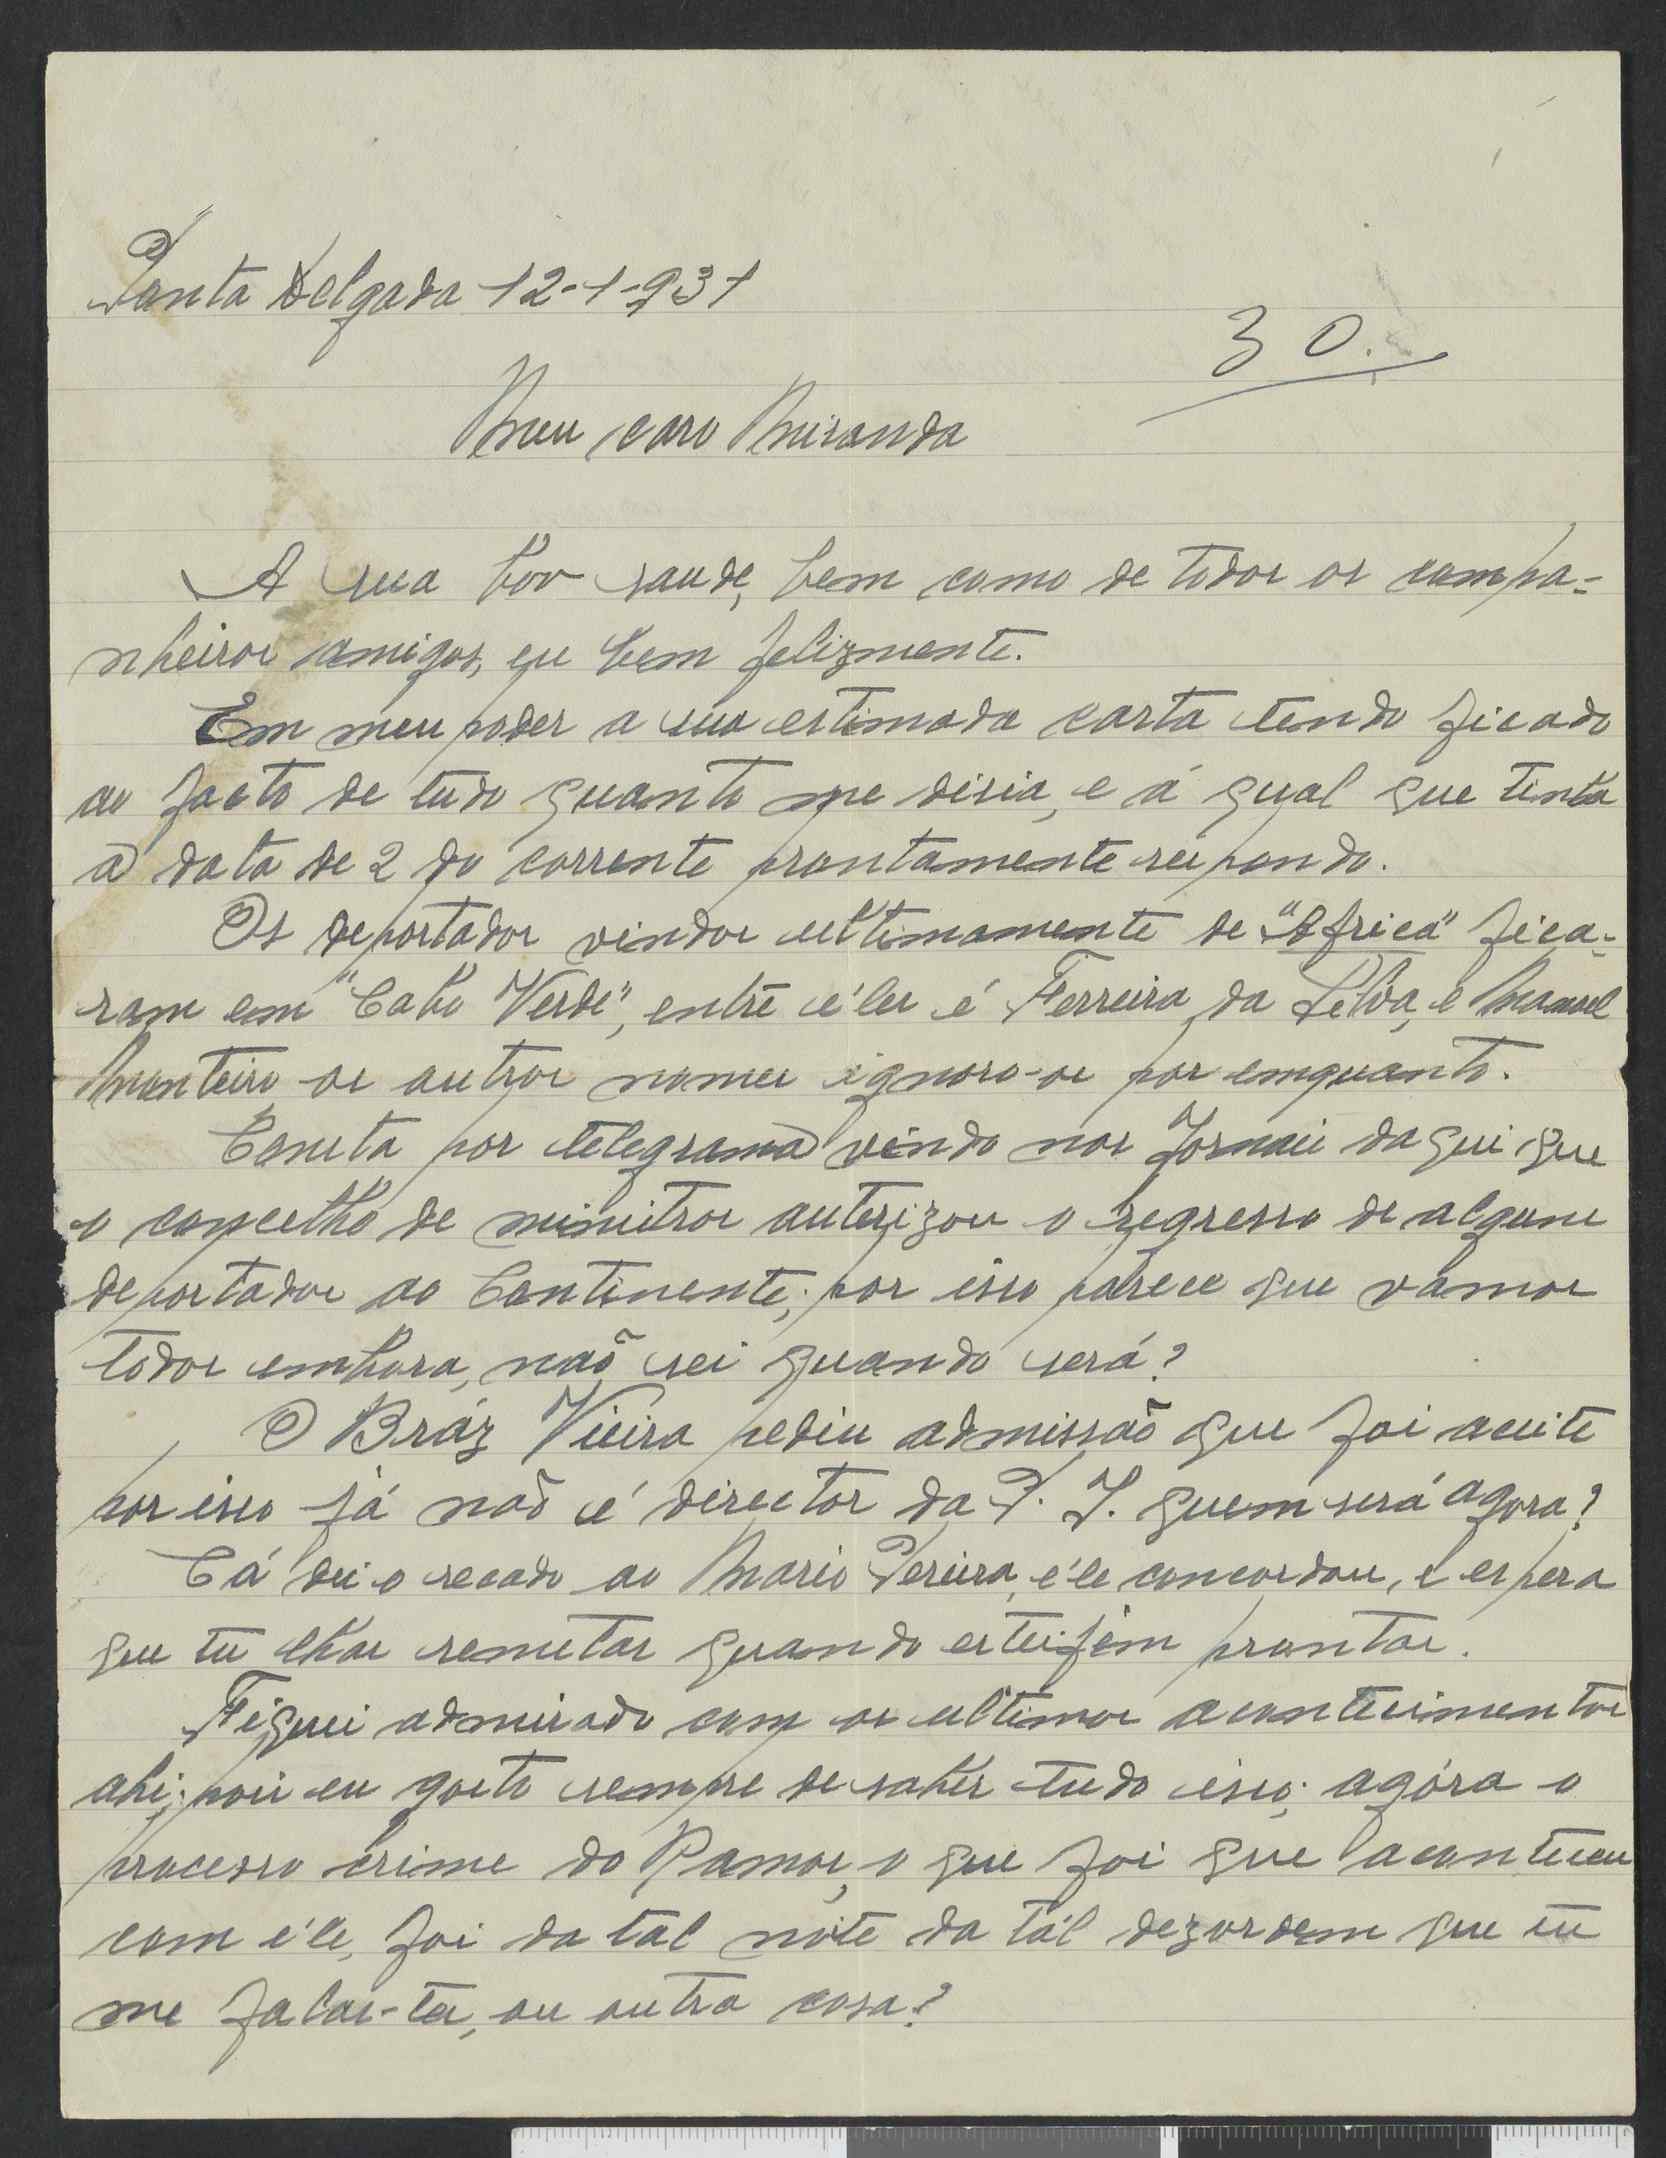 Ponta Delgada 12-1-931
30.
Meu caro Miranda
A sua boa saude, bem como de todos os compa-
nheiros amigos, eu bem felizmente.
Em meu poder a sua estimada carta tendo ficado
ao facto de tudo quanto me disia, e á qual que tinha
a data de 2 do corrente prontamente respondo.
Os deportados vindos ultimamente de "Africa" fica-
ram em "Cabo Verde", entre é'les é Ferreira da Silva, e Manuel
Monteiro os outros nomes ignoro-os por emquanto.
Consta por telegrama vindo nos Jornais daqui que
o concelho de ministros auterizou o regresso de alguns
deportados ao Continente; por isso parece que vamos
todos embora, naõ sei quando será?
O Bráz Vieira pediu admissaõ que foi aceite
por isso já naõ é director da P. I. quem será agora?
Cá dei o recado ao Mario Pereira, é'le concordou, e espera
que tu lhas remetas quando esteijem prontas.
Fiquei admirado com os ultimos acontecimentos
ahi; pois eu gosto sempre de saber tudo isso; agóra o
processo crime do Ramos, o que foi que aconteceu
com é'le, foi da tal noite da tál dezordem que tu
me falas-te, ou outra cosa?